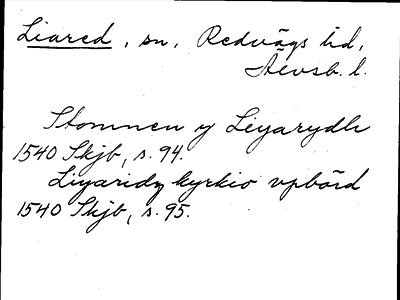 Liared, sn, Redvägs hd,
Älvsb. l.
Stommen y Liyarydh
1540 Skjb, s. 94.
Liyaridz kyrkio vpbörd
1540 Skjb, s. 95.